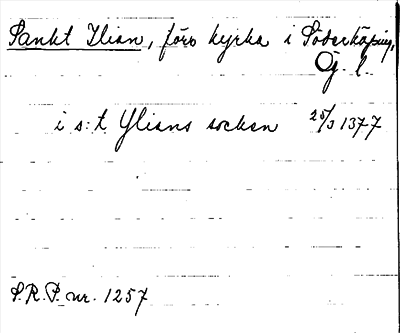 Sankt Ilian, förs kyrka i Söderköping,
Ög. l.
i s:t Ylians socken 25/3 1377
S.R.P. nr. 1257